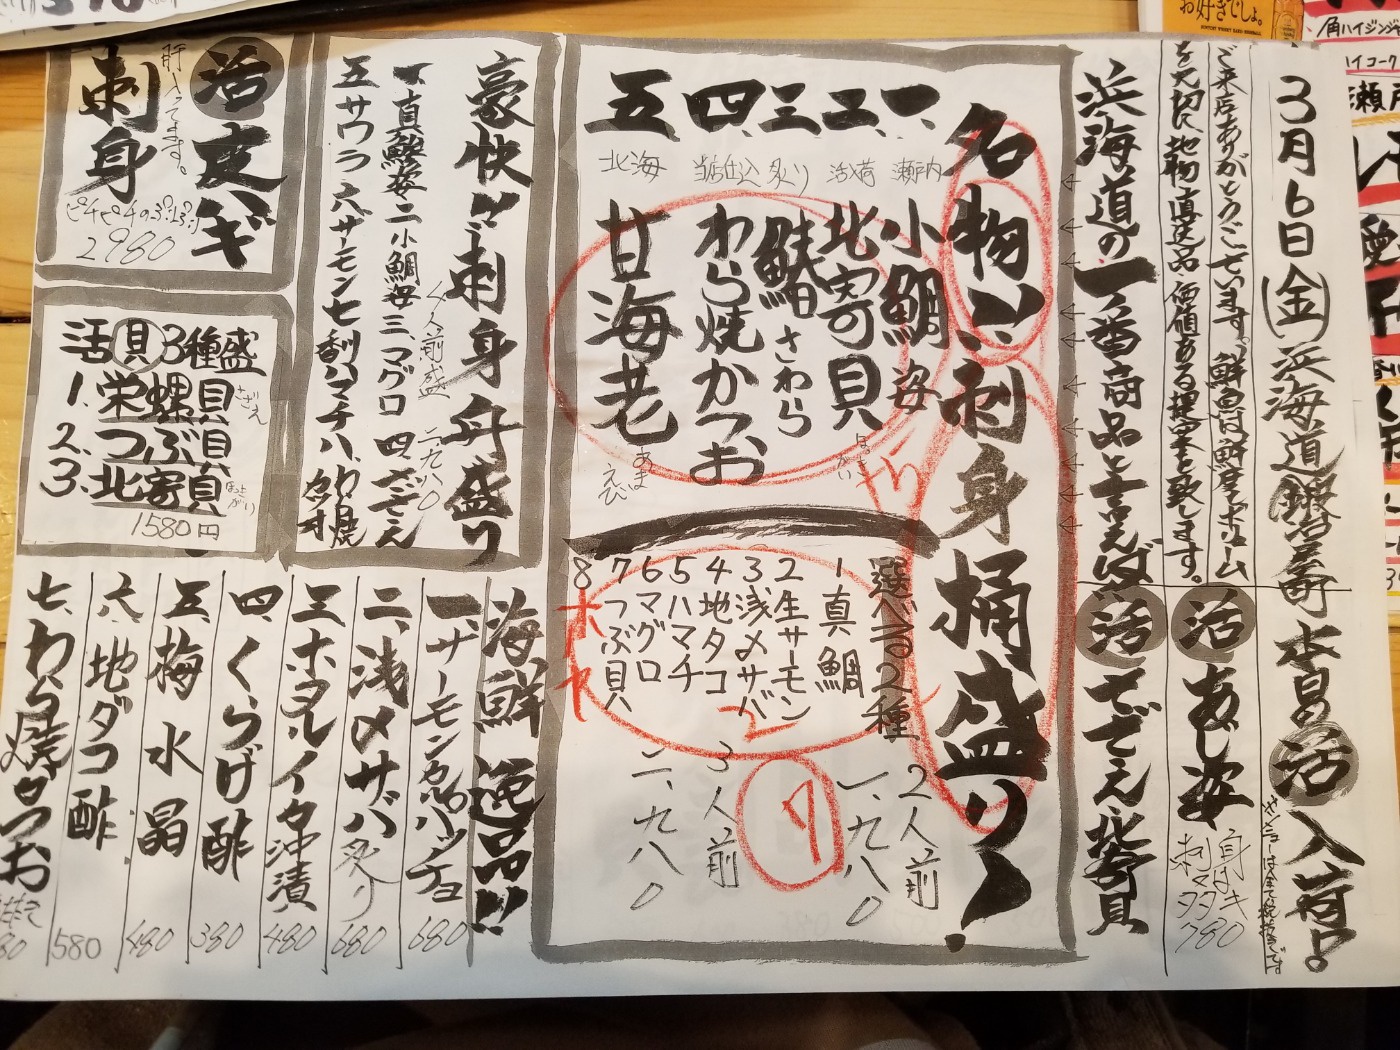 3月6日(金)浜海道鍛冶屋町 本日の活入荷!!
メニューは全て税抜きです
ご来店ありがとうございます。鮮魚は鮮度でボリューム
を大切に地物、直送品、価値ある提案を致します。
活あじ姿
身はサシ
刺 タタキ
780
浜海道の一番商品と言えば
活さざえ、北寄貝
名物!!刺身桶盛り!
一、瀬戸内 小鯛姿
二、活入荷 北寄貝 ほっきがい
三、炙り 鰆 さわら
四、当店仕込 わら焼かつお
五、北海 甘海老 あまえび
選べる2種
1 真鯛
2 生サーモン
3 浅〆サバ
4 地タコ
5 ハマチ
6 マグロ
7 つぶ貝
8 ホヤ
2人前
一、九八〇
3人前
二、九八〇
豪快!!刺身舟盛り
4人前盛 二、九八〇
一、真鯵姿 二、小鯛姿 三、マグロ 四、さざえ
五 サワラ 六 サーモン 七 ハマチ 八、わら焼カツオ
活皮ハギ
刺身
肝入ってます。
ピチピチのプリプリ
2980
活貝3種盛
1. 栄螺貝 さざえ
2. つぶ貝
3. 北寄貝 ほっきがい
1580円
海鮮逸品!!
一、サーモンカルパッチョ 680
二、浅〆サバ炙り 680
三、ホタルイカ沖漬 480
四、くらげ酢 380
五、梅水晶 480
六、地ダコ酢 580
七、わら焼きかつお
お好きでしょ。
角ハイジンジャ
ハイコーク
瀬戸